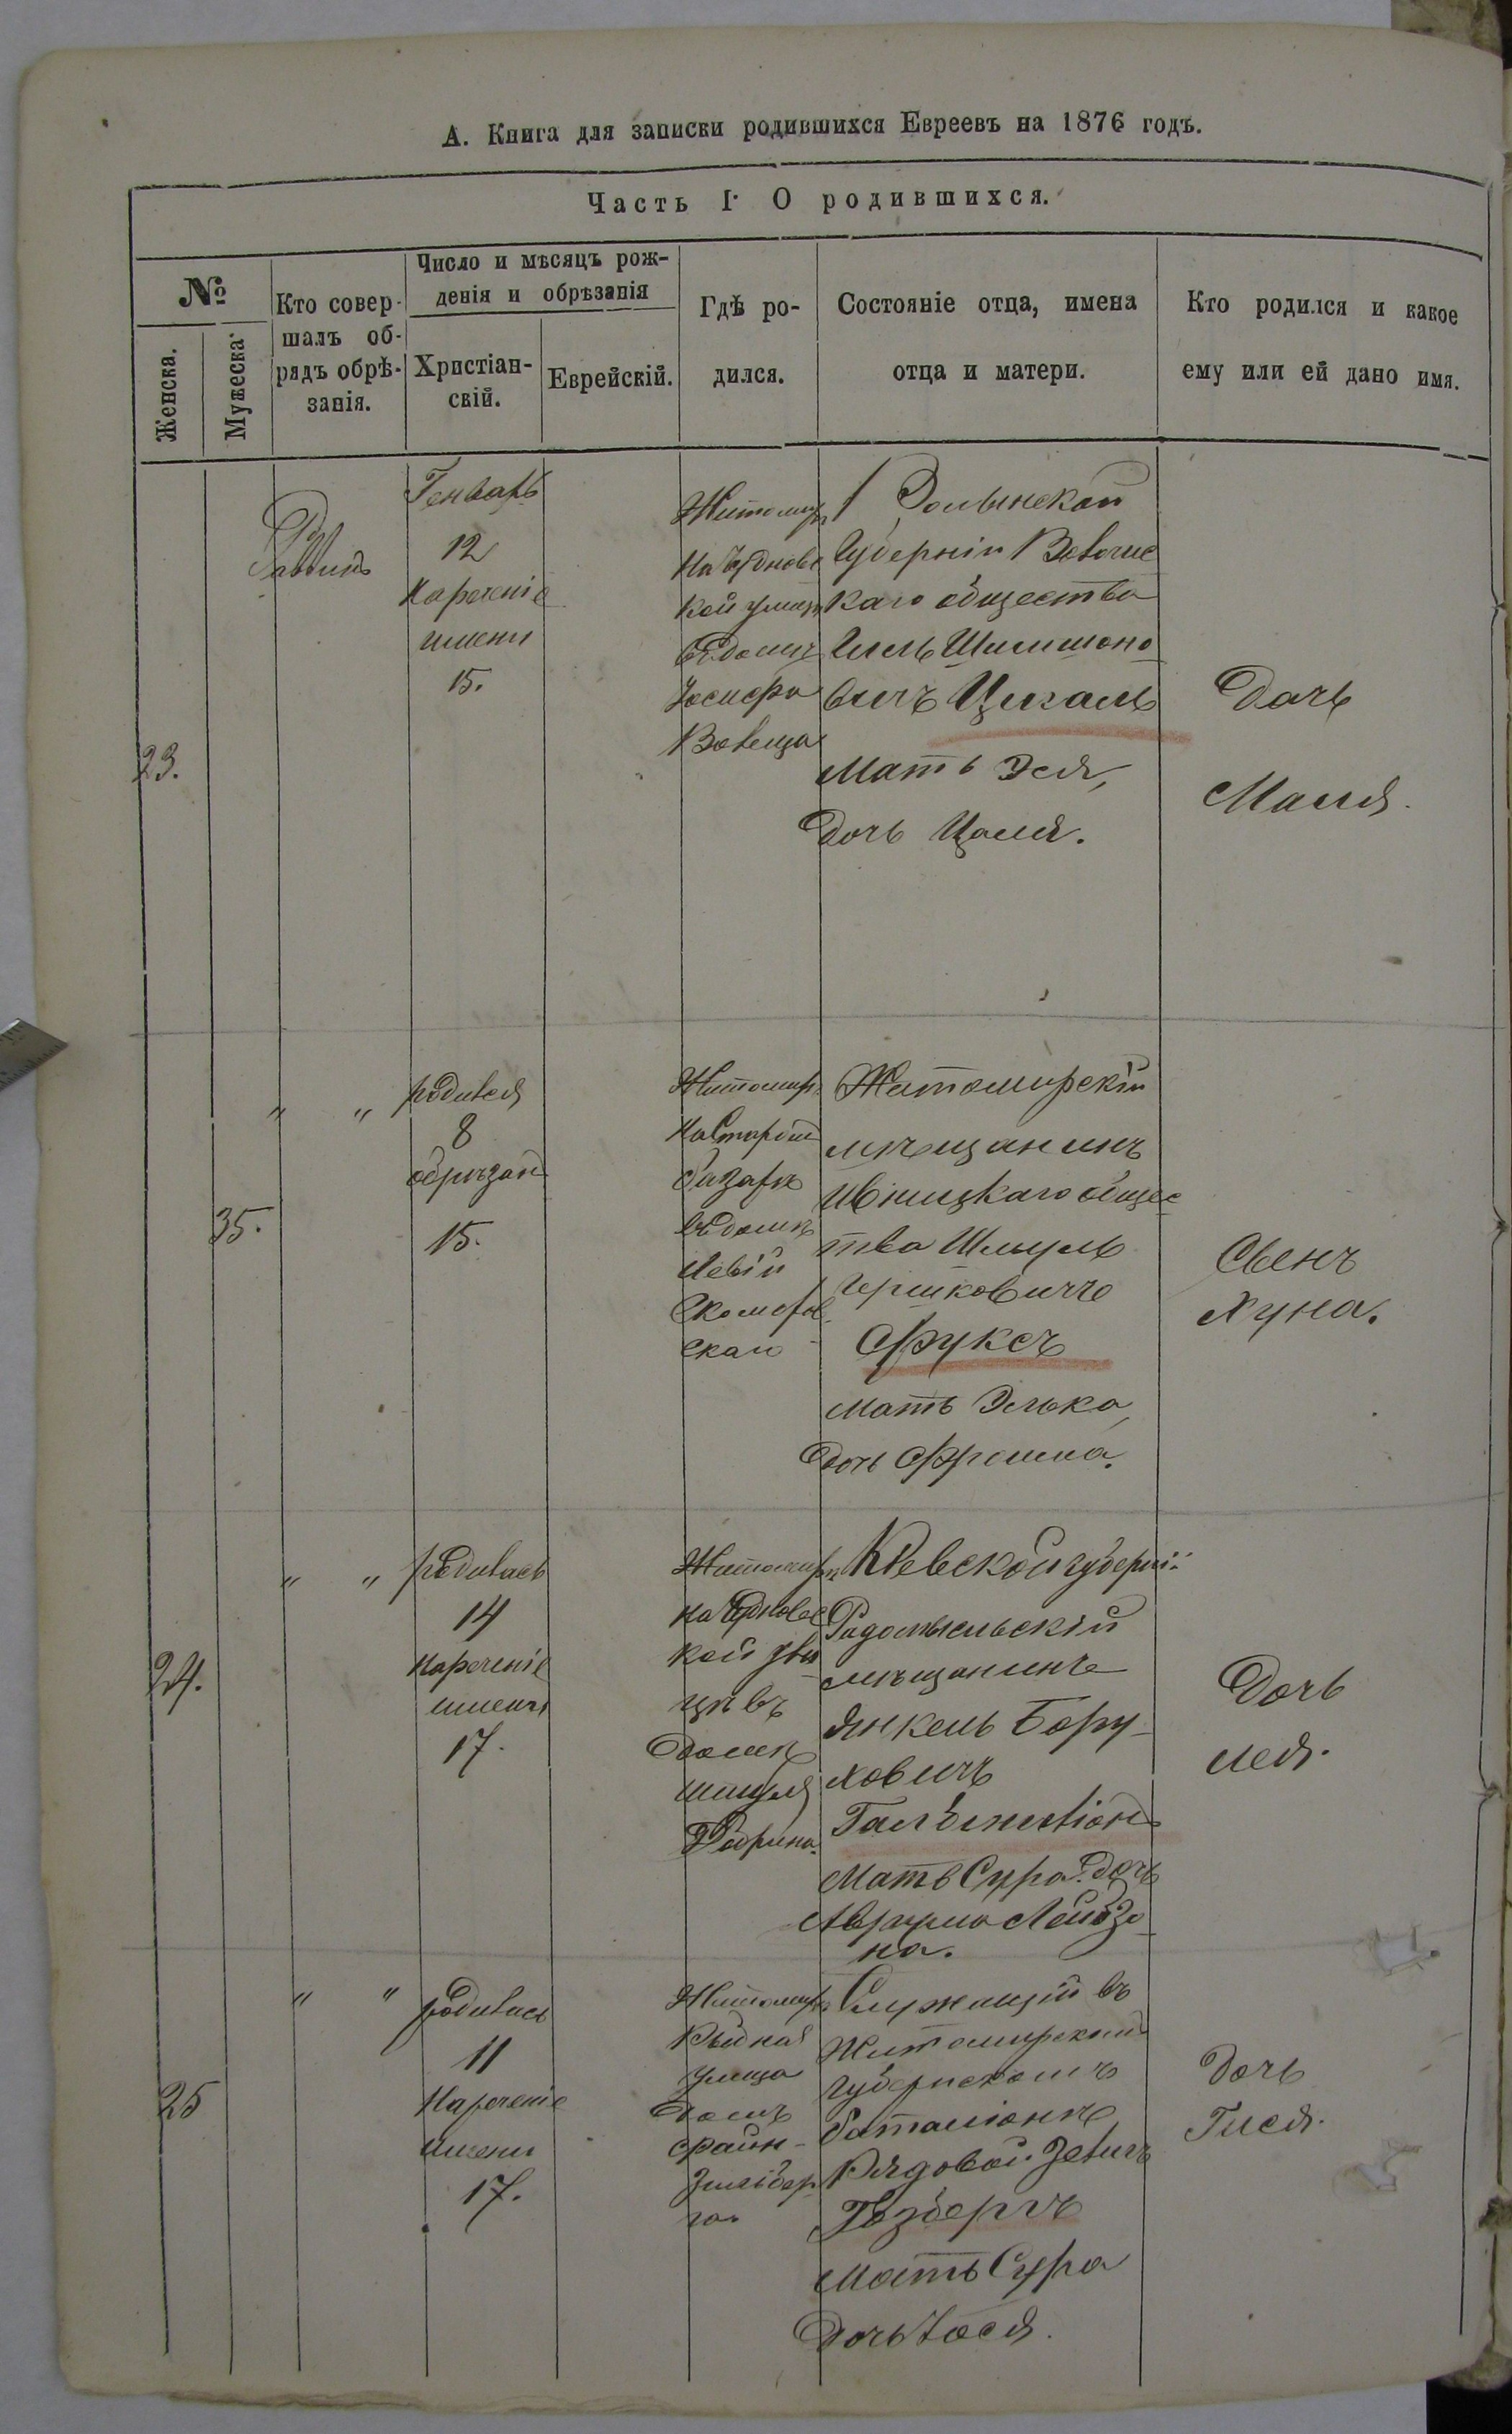 А. Книга для записки родившихся Евреевъ на 1876 годъ.
Часть I. О родившихся.
№
Женска.
Мужеска.
Кто совер-
шалъ об-
рядъ обрѣ-
занія.
Число и мѣсяцъ рож-
денія и обрѣзанія
Христіан-
скій.
Еврейскій.
Гдѣ ро-
дился.
Состояніе отца, имена
отца и матери.
Кто родился и какое
ему или ей дано имя.
23.
Раввинъ
Генварь
12
Нареченіе
имени
15.
Житомир
На Чудновс
кой улиц
въ домѣ
Іосифа
Волынской
Губерніи
каго общества
Шлишоно
вичъ Цигаль
Мать Эся,
дочь Цаля.
Дочь
Маля.
35.
" "
родился
8
обрѣзанъ
15.
Житомир
На Старом
базарѣ
въ домѣ
Левій
Скоморов
скаго
Житомирскій
мѣщанинъ
Ивницкаго общес
тва Шмуль
Гершковичъ
Фуксъ
Мать Элька,
дочь Фроима.
Сынъ
Хуна.
24.
" "
родилась
14
Нареченіе
имени
17.
Житомир
на Чудновс
кой ули
цѣ въ
домѣ
Шмуля
Кіевской губерніи
Радомысльскій
мѣщанинъ
Янкель Бору-
ховичъ
Мать Сура дочь
Аврума Лейбзо
на.
Дочь
Лея.
25
" "
родилась
11
Нареченіе
имени
17.
Житомир
Рыбная
улица
домъ
Файн-
зильбер
га.
Служащій въ
Житомирскомъ
Губернскомъ
баталіонѣ
Рядовой Зельигъ
Гозбергъ
Мать Сура
дочь Іося.
Дочь
Гися.